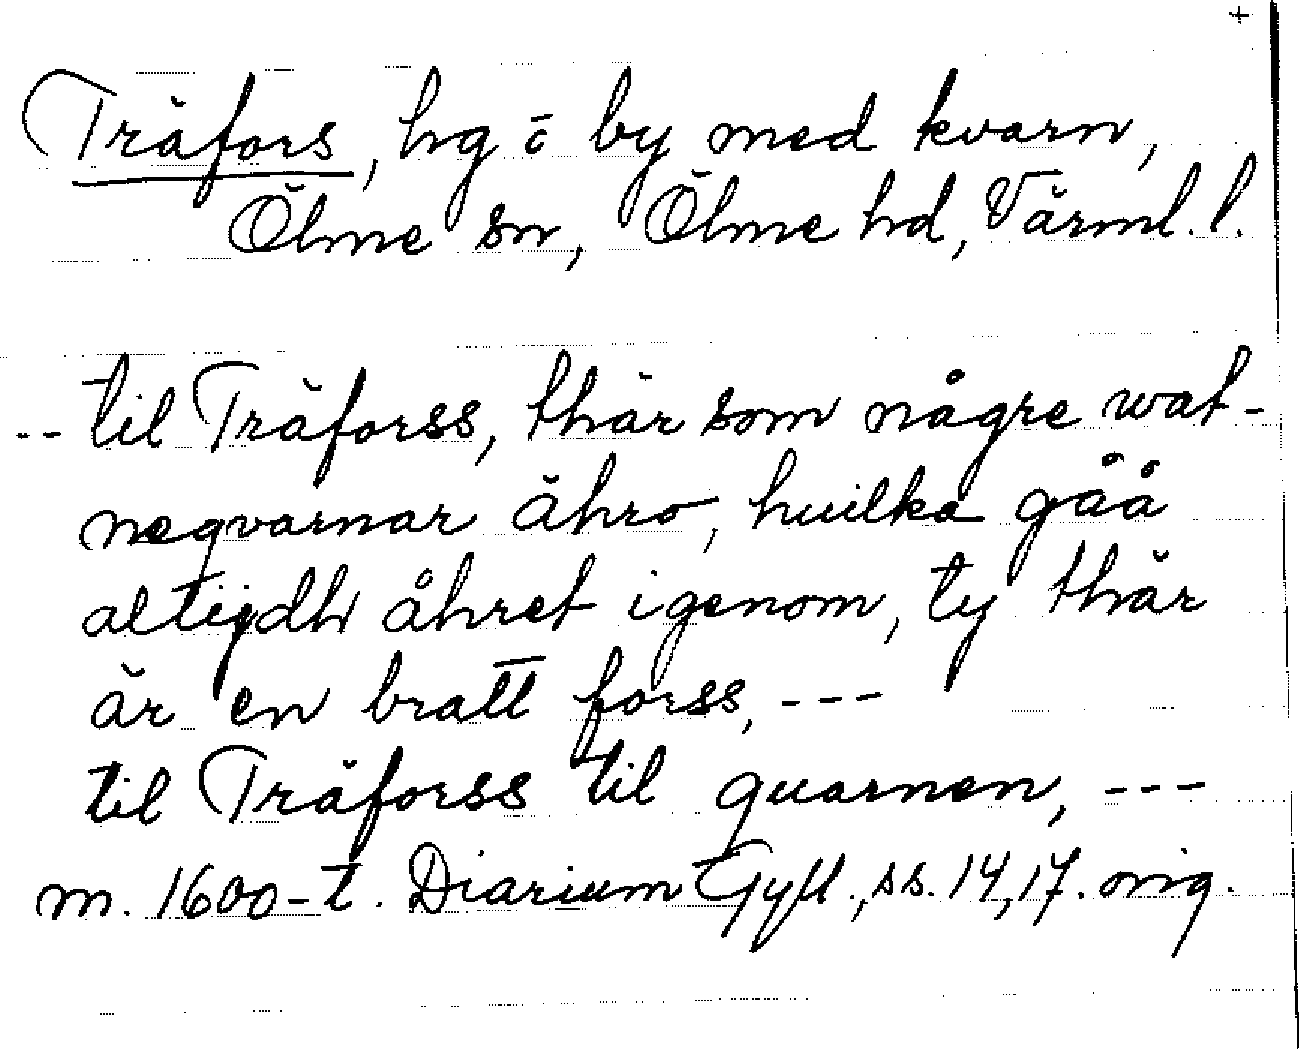 +
Träfors, hg o by med kvarn,
Ölme sn, Ölme hd, Värml. l.
-- til Träforss, thär som någre wat-
negvarnar ähro, huilka gåå
altijdh åhret igenom, ty thär
är en bratt forss, ---
til Träforss til quarnen, ---
m. 1600-t. Diarium Gyll., ss. 14, 17. orig.